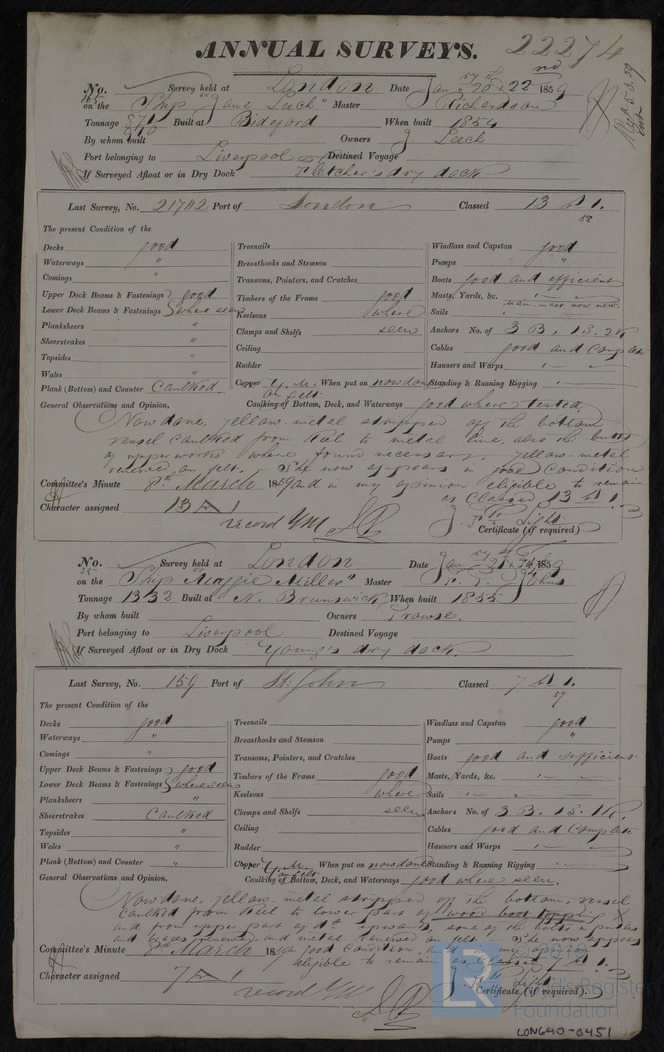 ANNUAL SURVEYS. 22274
No. Survey held at London Date Jany 20 22nd 1859
on the Ship "Jane Leech" Master Richardson
Tonnage 871 Built at Bideford When built 1854
By whom built Owners J. Leech
Port belonging to Liverpool Destined Voyage
If Surveyed Afloat or in Dry Dock Fletcher's dry dock
Last Survey, No. 21742 Port of London Classed 13 A 1.
The present Condition of the
Decks good Treenails Windlass and Capstan good
Waterways " Breasthooks and Stemson Pumps "
Comings " Transoms, Pointers, and Crutches Boats good and efficient
Upper Deck Beams & Fastenings good Timbers of the Frame good Masts, Yards, &c. "
Lower Deck Beams & Fastenings where seen Keelsons where Sails "
Planksheers " Clamps and Shelfs seen Anchors No. of 3 B. 1 S. 2 K
Sheerstrakes " Ceiling Cables good and Complete
Topsides " Rudder Hausers and Warps "
Wales " Copper Y.M. on felt When put on now done Standing & Running Rigging "
Plank (Bottom) and Counter Caulked Caulking of Bottom, Deck, and Waterways good where tested.
General Observations and Opinion,
Now done, yellow metal stripped off the bottom
vessel caulked from keel to metal line, also the butts
of upperworks where found necessary. yellow metal
renewed on felt. She now appears in good Condition
Committee's Minute 8th March 1859 and in my opinion eligible to remain
as Classed 13 A 1.
Character assigned 13 A 1
record YM
Certificate (if required)
No. Survey held at London Date Jany 1859
on the Ship "Maggie Miller" Master
Tonnage 1332 Built at N. Brunswick When built 1855
By whom built Owners Prowse.
Port belonging to Liverpool Destined Voyage
If Surveyed Afloat or in Dry Dock Young's dry dock.
Last Survey, No. 159 Port of St. John Classed 7 A 1.
57
The present Condition of the
Decks good Treenails Windlass and Capstan good
Waterways " Breasthooks and Stemson Pumps "
Comings " Transoms, Pointers, and Crutches Boats good and sufficient
Upper Deck Beams & Fastenings good Timbers of the Frame good Masts, Yards, &c. "
Lower Deck Beams & Fastenings where seen Keelsons where Sails "
Planksheers " Clamps and Shelfs seen Anchors No. of 3 B. 1 S. 1 K.
Sheerstrakes Caulked Ceiling Cables good and Complete
Topsides " Rudder Hausers and Warps "
Wales " Copper Y.M. on felt When put on now done Standing & Running Rigging "
Plank (Bottom) and Counter " Caulking of Bottom, Deck, and Waterways good where seen.
General Observations and Opinion,
Now done, yellow metal stripped off the bottom, vessel
caulked from keel to lower part of
and from upper part of do upwards, some of the bolts in
renewed and metal renewed on felt. She now appears
Committee's Minute 8th March 18 in good Condition,
eligible to remain as Classed 7 A 1.
Character assigned 7 A 1
record YM
Certificate (if required).
LR
Lloyd's Register
Foundation
LON640-0451